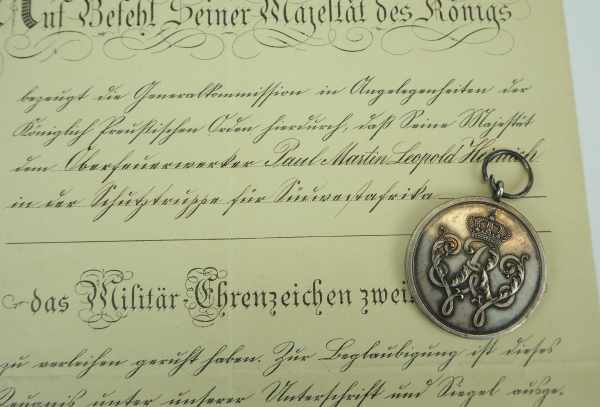 Auf Befehl Seiner Majestät des Königs
bezeugt die Generalkommission in Angelegenheiten der
Königlich Preußischen Orden hierdurch, daß Seine Majestät
dem Oberfeuerwerker Paul Martin Leopold Heinrich
in der Schutztruppe für Südwestafrika
das Militär-Ehrenzeichen zwei
zu verleihen geruht haben. Zur Beglaubigung ist dieses
Zeugnis unter unserer Unterschrift und Siegel ausge-